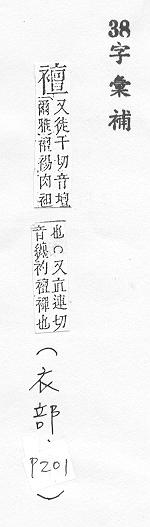 38字彙補
襢 又徒干切音壇
爾雅襢裼肉袒
也○又直連切
音纏衿襢襌也
(衣部.
P201)